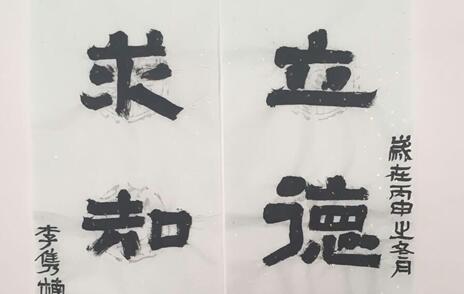 歲在丙申之冬月
立德
求知
李隽楠